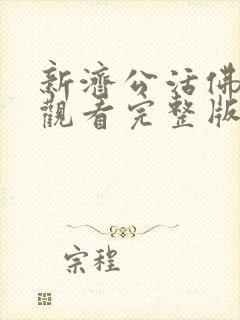 新濟公活佛
觀看完整版
宗程